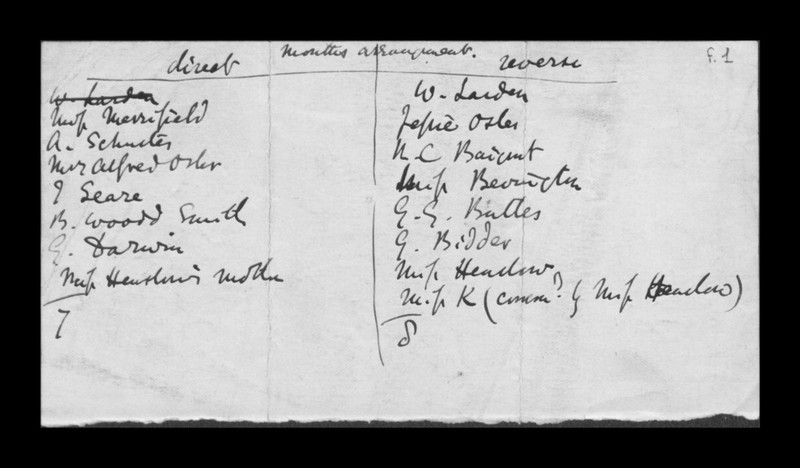 months arrangement.
direct
reverse
f. 1
W. Larden
Miss Merrifield
A. Schuster
Mrs Alfred Osler
J Seare
B. Woodd Smith
G. Darwin
Miss Henslow's mother
7
W. Larden
Jessie Osler
N C
Miss Bevington
G. G. Butler
G. Bidder
Miss Henslow
Miss K (comm? by Miss Henslow)
8